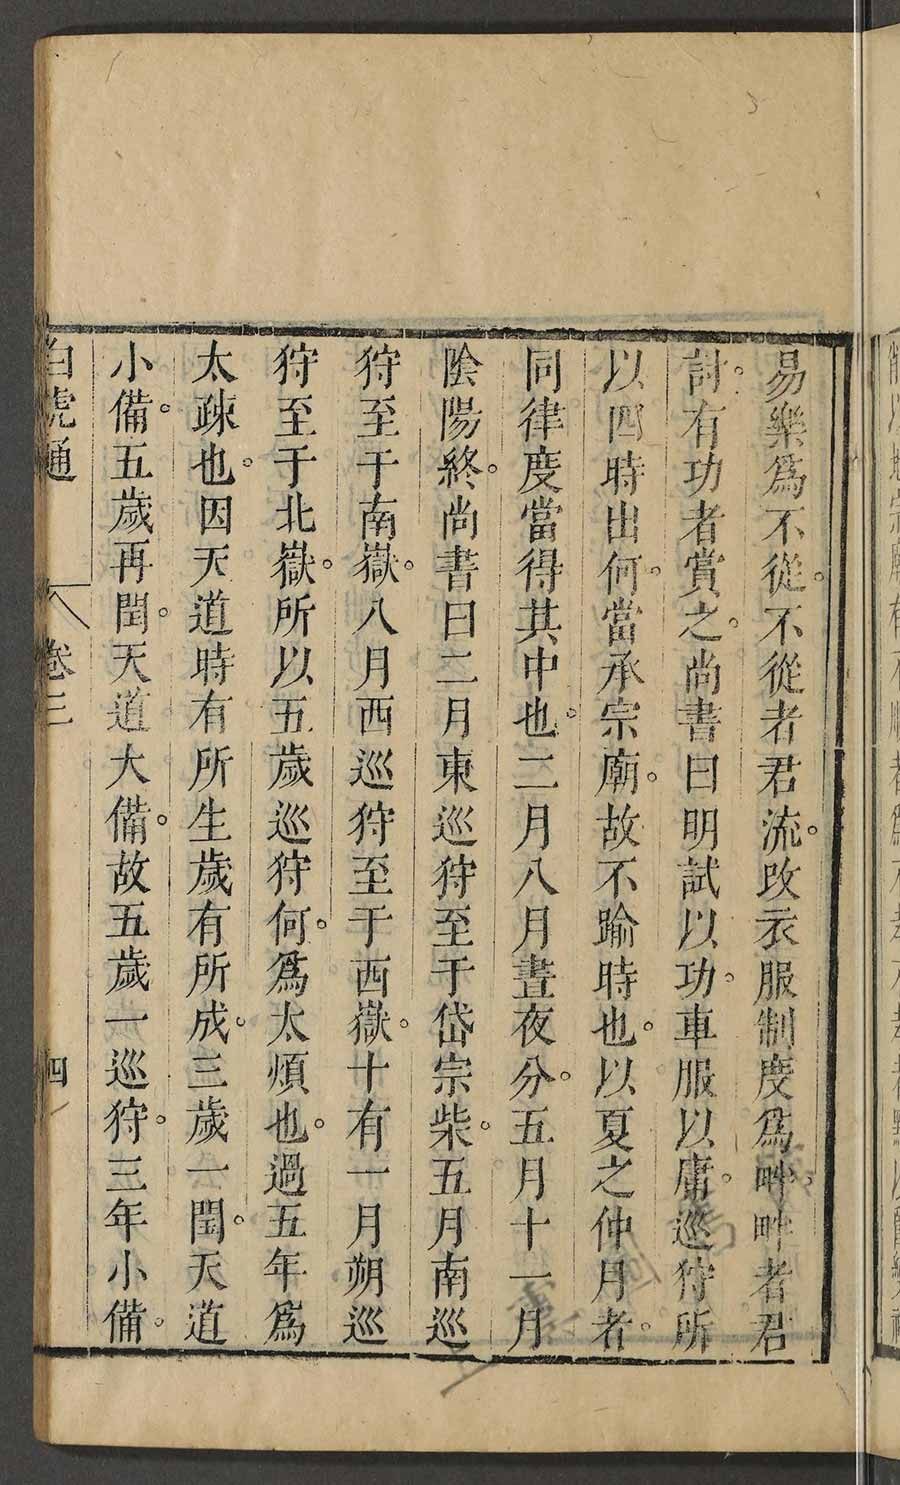 易樂爲不從。不從者君流。改衣服制度爲畔。畔者君
討。有功者賞之。尚書曰明試以功。車服以庸。巡狩所
以四時出何。當承宗廟。故不踰時也。以夏之仲月者。
同律度當得其中也。二月八月晝夜分。五月十一月
陰陽終。尚書曰二月東巡狩至于岱宗柴。五月南巡
狩至于南嶽。八月西巡狩至于西嶽。十有一月朔巡
狩至于北嶽。所以五歲巡狩何。爲太煩也。過五年爲
太疎也。因天道時有所生歲有所成。三歲一閏。天道
小備。五歲再閏。天道大備。故五歲一巡狩。三年小備。
白虎通 卷三 四